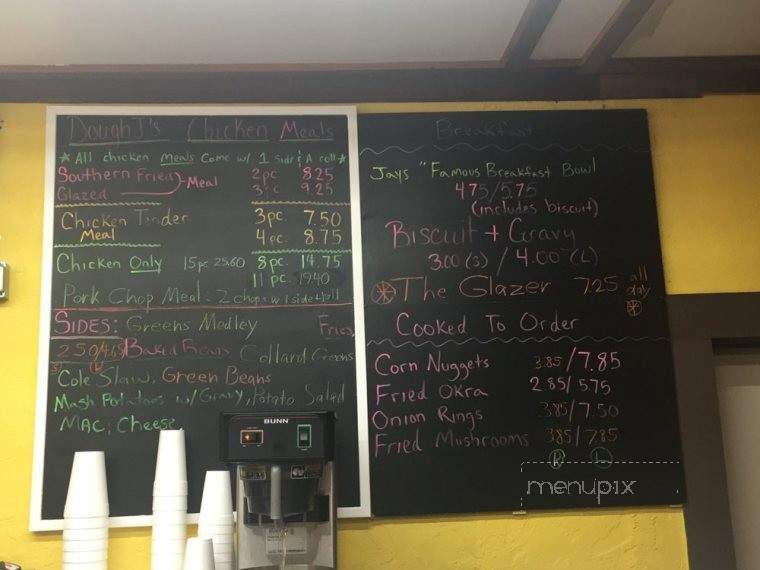 DoughJ's Chicken Meals
★ All chicken meals come w/ 1 side & A roll ★
Southern Fried 2pc 8.25
Glazed Meal 3pc 9.25
Chicken Tender 3pc. 7.50
Meal 4pc. 8.75
Chicken Only 15pc 25.60 8pc. 14.75
11pc. 19.40
Pork Chop Meal - 2 chops w/ side & roll
SIDES: Greens Medley Fries
2.50/4.65 Baked Beans Collard Greens
Cole Slaw, Green Beans
Mash Potatoes w/ Gravy, Potato Salad
MAC, Cheese
BUNN
Breakfast
Jays "Famous Breakfast Bowl
4.75/5.75
(includes biscuit)
Biscuit + Gravy
3.00 (S) / 4.00 (L)
The Glazer 7.25 all day
Cooked To Order
Corn Nuggets 3.85/7.85
Fried Okra 2.85/5.75
Onion Rings 3.85/7.50
Fried Mushrooms 3.85/7.85
R L
menupix